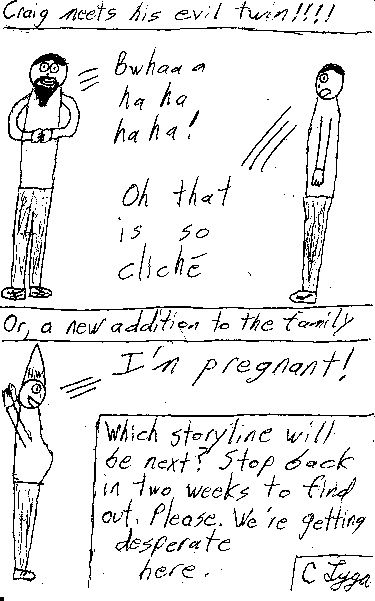 Craig meets his evil twin!!!!
Bwhaaa
ha ha
ha ha!
Oh that
is so
cliché
Or, a new addition to the family
I'm pregnant!
Which storyline will
be next? Stop back
in two weeks to find
out. Please. We're getting
desperate
here.
C